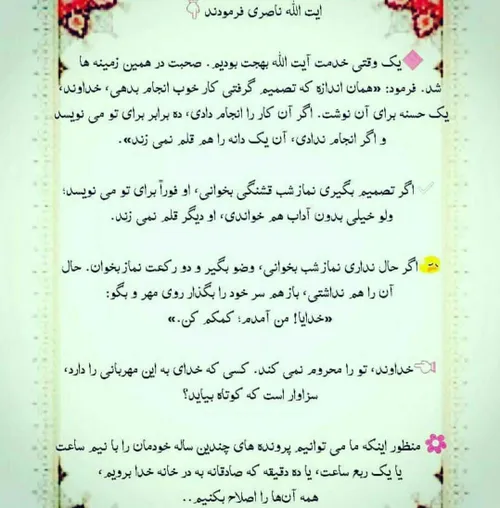 ایت الله ناصری فرمودند
یک وقتی خدمت آیت الله بهجت بودیم. صحبت در همین زمینه ها
شد. فرمود: «همان اندازه که تصمیم گرفتی کار خوب انجام بدهی، خداوند،
یک حسنه برای آن نوشت. اگر آن کار را انجام دادی، ده برابر برای تو می نویسد
و اگر انجام ندادی، آن یک دانه را هم قلم نمی زند».
اگر تصمیم بگیری نماز شب قشنگی بخوانی، او فوراً برای تو می نویسد؛
ولو خیلی بدون آداب هم خواندی، او دیگر قلم نمی زند.
اگر حال نداری نماز شب بخوانی، وضو بگیر و دو رکعت نماز بخوان. حال
آن را هم نداشتی، باز هم سر خود را بگذار روی مهر و بگو:
«خدایا! من آمدم؛ کمکم کن.»
خداوند، تو را محروم نمی کند. کسی که خدای به این مهربانی را دارد،
سزاوار است که کوتاه بیاید؟
منظور اینکه ما می توانیم پرونده های چندین ساله خودمان را با نیم ساعت
یا یک ربع ساعت، یا ده دقیقه که صادقانه به در خانه خدا برویم،
همه آن‌ها را اصلاح بکنیم..